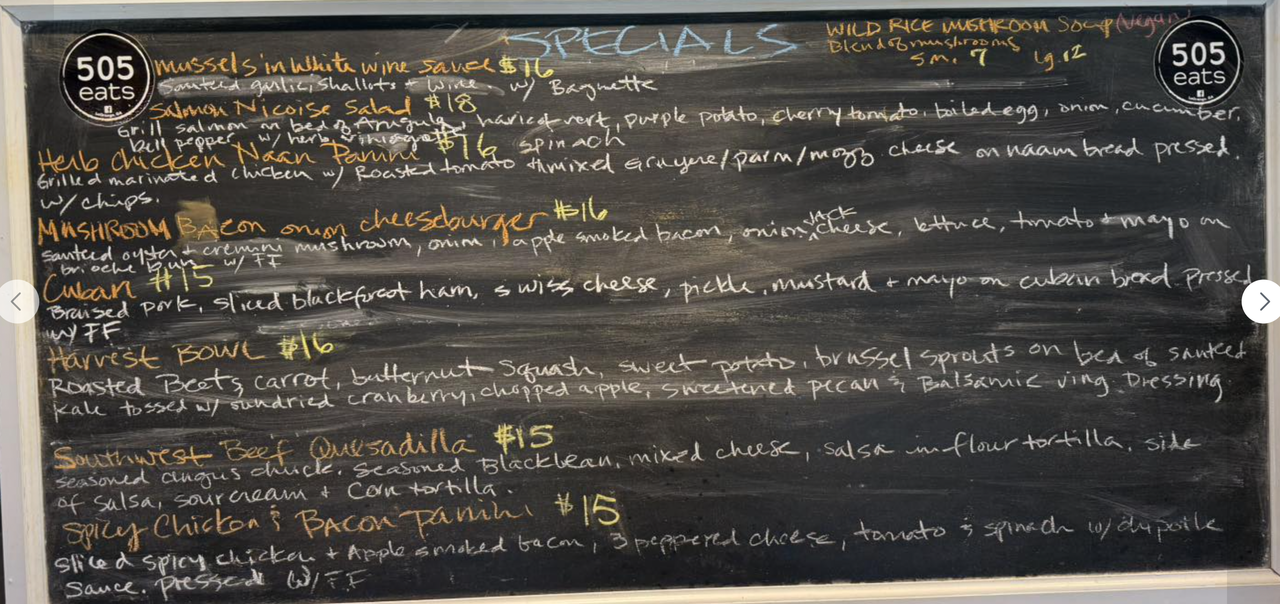 SPECIALS
WILD RICE MUSHROOM Soup (Vegan)
Blend of mushrooms
sm. 7 lg. 12
505
eats
505
eats
mussels in White wine sauce $16
Sauteed garlic, shallots + wine. w/ Baguette
Salmon Nicoise Salad $18
Grill salmon on bed of Arugula, haricot vert, purple potato, cherry tomato, boiled egg, onion, cucumber,
bell pepper w/ herb
Herb chicken Naan Panini $16 spinach
Grilled marinated chicken w/ Roasted tomato + mixed Gruyere/parm/mozz cheese on naan bread pressed.
w/ chips.
MUSHROOM Bacon onion cheeseburger $16
sauteed oyster + cremini mushroom, onion, apple smoked bacon, onion, JACK cheese, lettuce, tomato + mayo on
brioche bun w/ FF
Cuban $15
Braised pork, sliced blackforest ham, swiss cheese, pickle, mustard + mayo on cuban bread Pressed
w/ FF
Harvest BOWL $16
Roasted Beets, carrot, butternut Squash, sweet potato, brussel sprouts on bed of sauteed
kale tossed w/ sundried cranberry, chopped apple, sweetened pecan & Balsamic ving. Dressing
Southwest Beef Quesadilla $15
seasoned angus chuck, seasoned Blackbean, mixed cheese, salsa in flour tortilla. side
of salsa, sour cream + Corn tortilla.
Spicy Chicken & BACON Panini $15
sliced spicy chicken + Apple smoked bacon, 3 peppered cheese, tomato & spinach w/ chipotle
sauce. pressed w/ FF